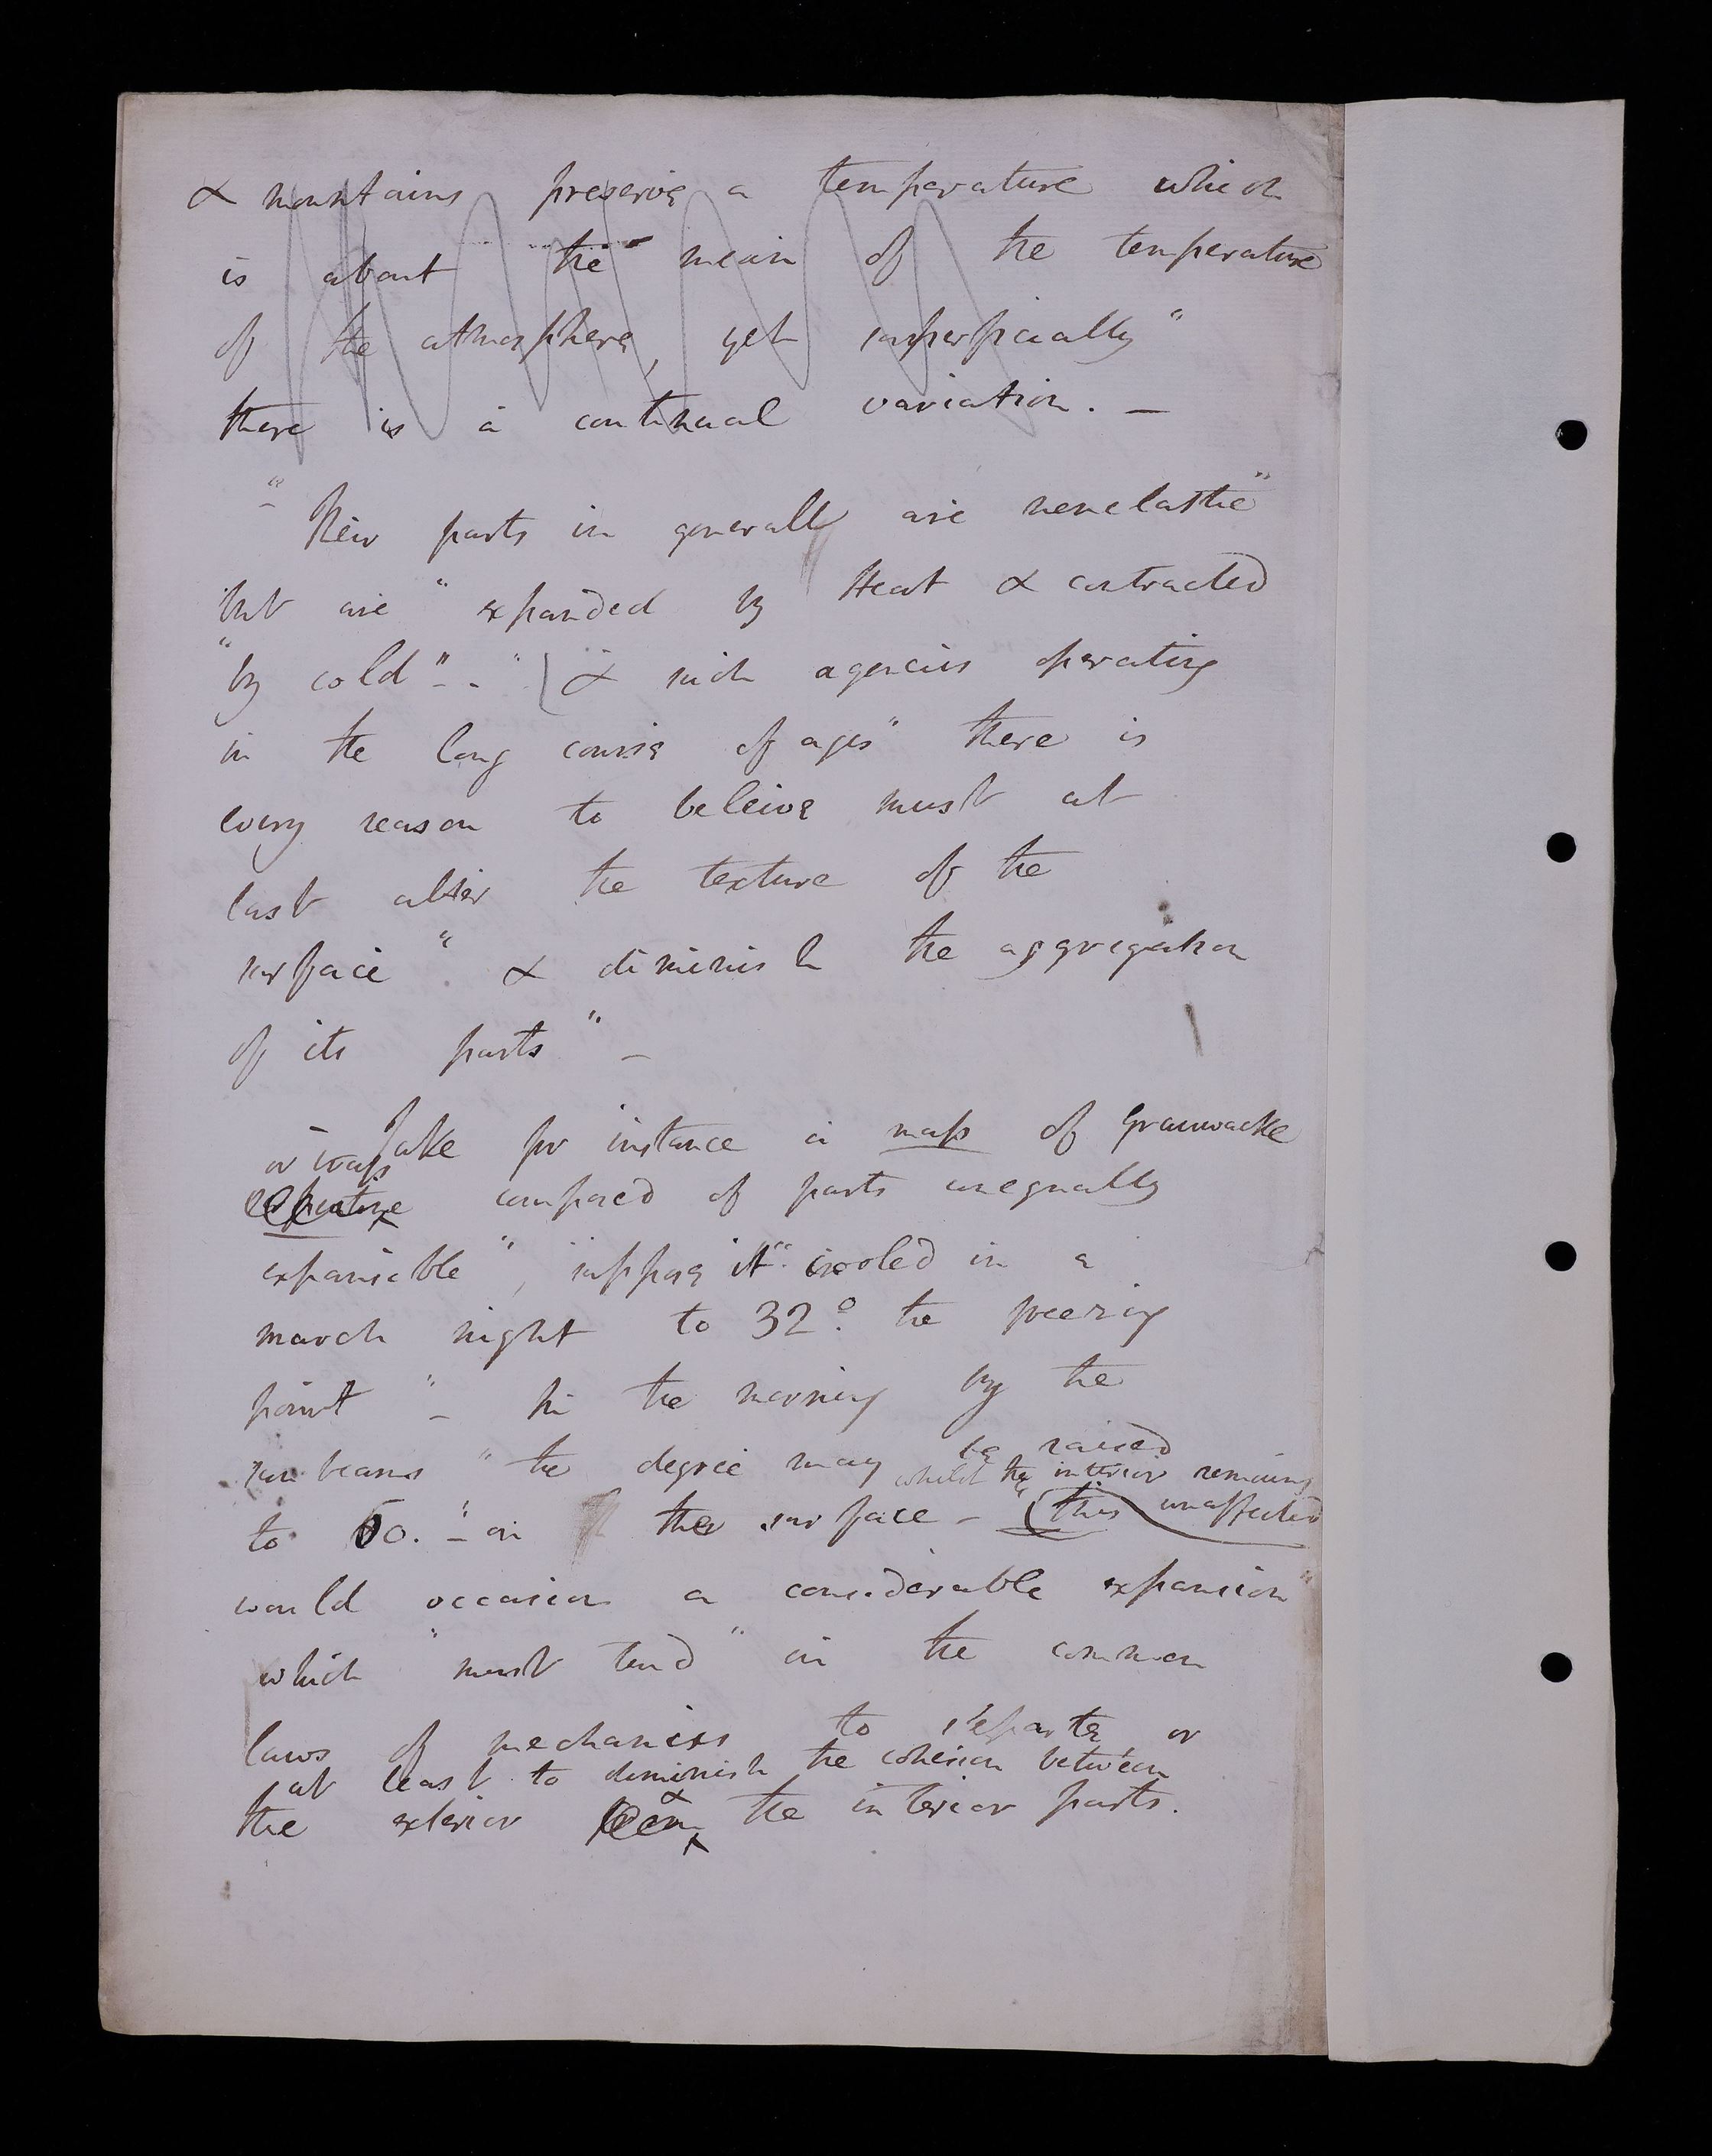 & mountains preserve a temperature which
is about the mean of the temperature
of the atmosphere, yet superficially "
there is a continual variation. —
" Their parts in generally are nonelastic "
but are " expanded by Heat & contracted
" by cold " - . " ( & such agencies operating
in the long course of ages " there is
every reason to beleive must at
last alter the texture of the
surface " & diminish the aggregation
of its parts " —
— Take for instance a mass of Grauwacke
or trap
composed of parts unequally
expansible " , " suppose it " cooled in a
march night to 32°. the freezing
point " — In the morning by the
sun beams " the degree may be raised
whilst the interior remains
unaffected
to 60. " — on the surface — " (this
would occasion a considerable expansion "
which " must tend " in the common
laws of mechanics to separate or
at least to diminish the cohesion between
the exterior & the interior parts.